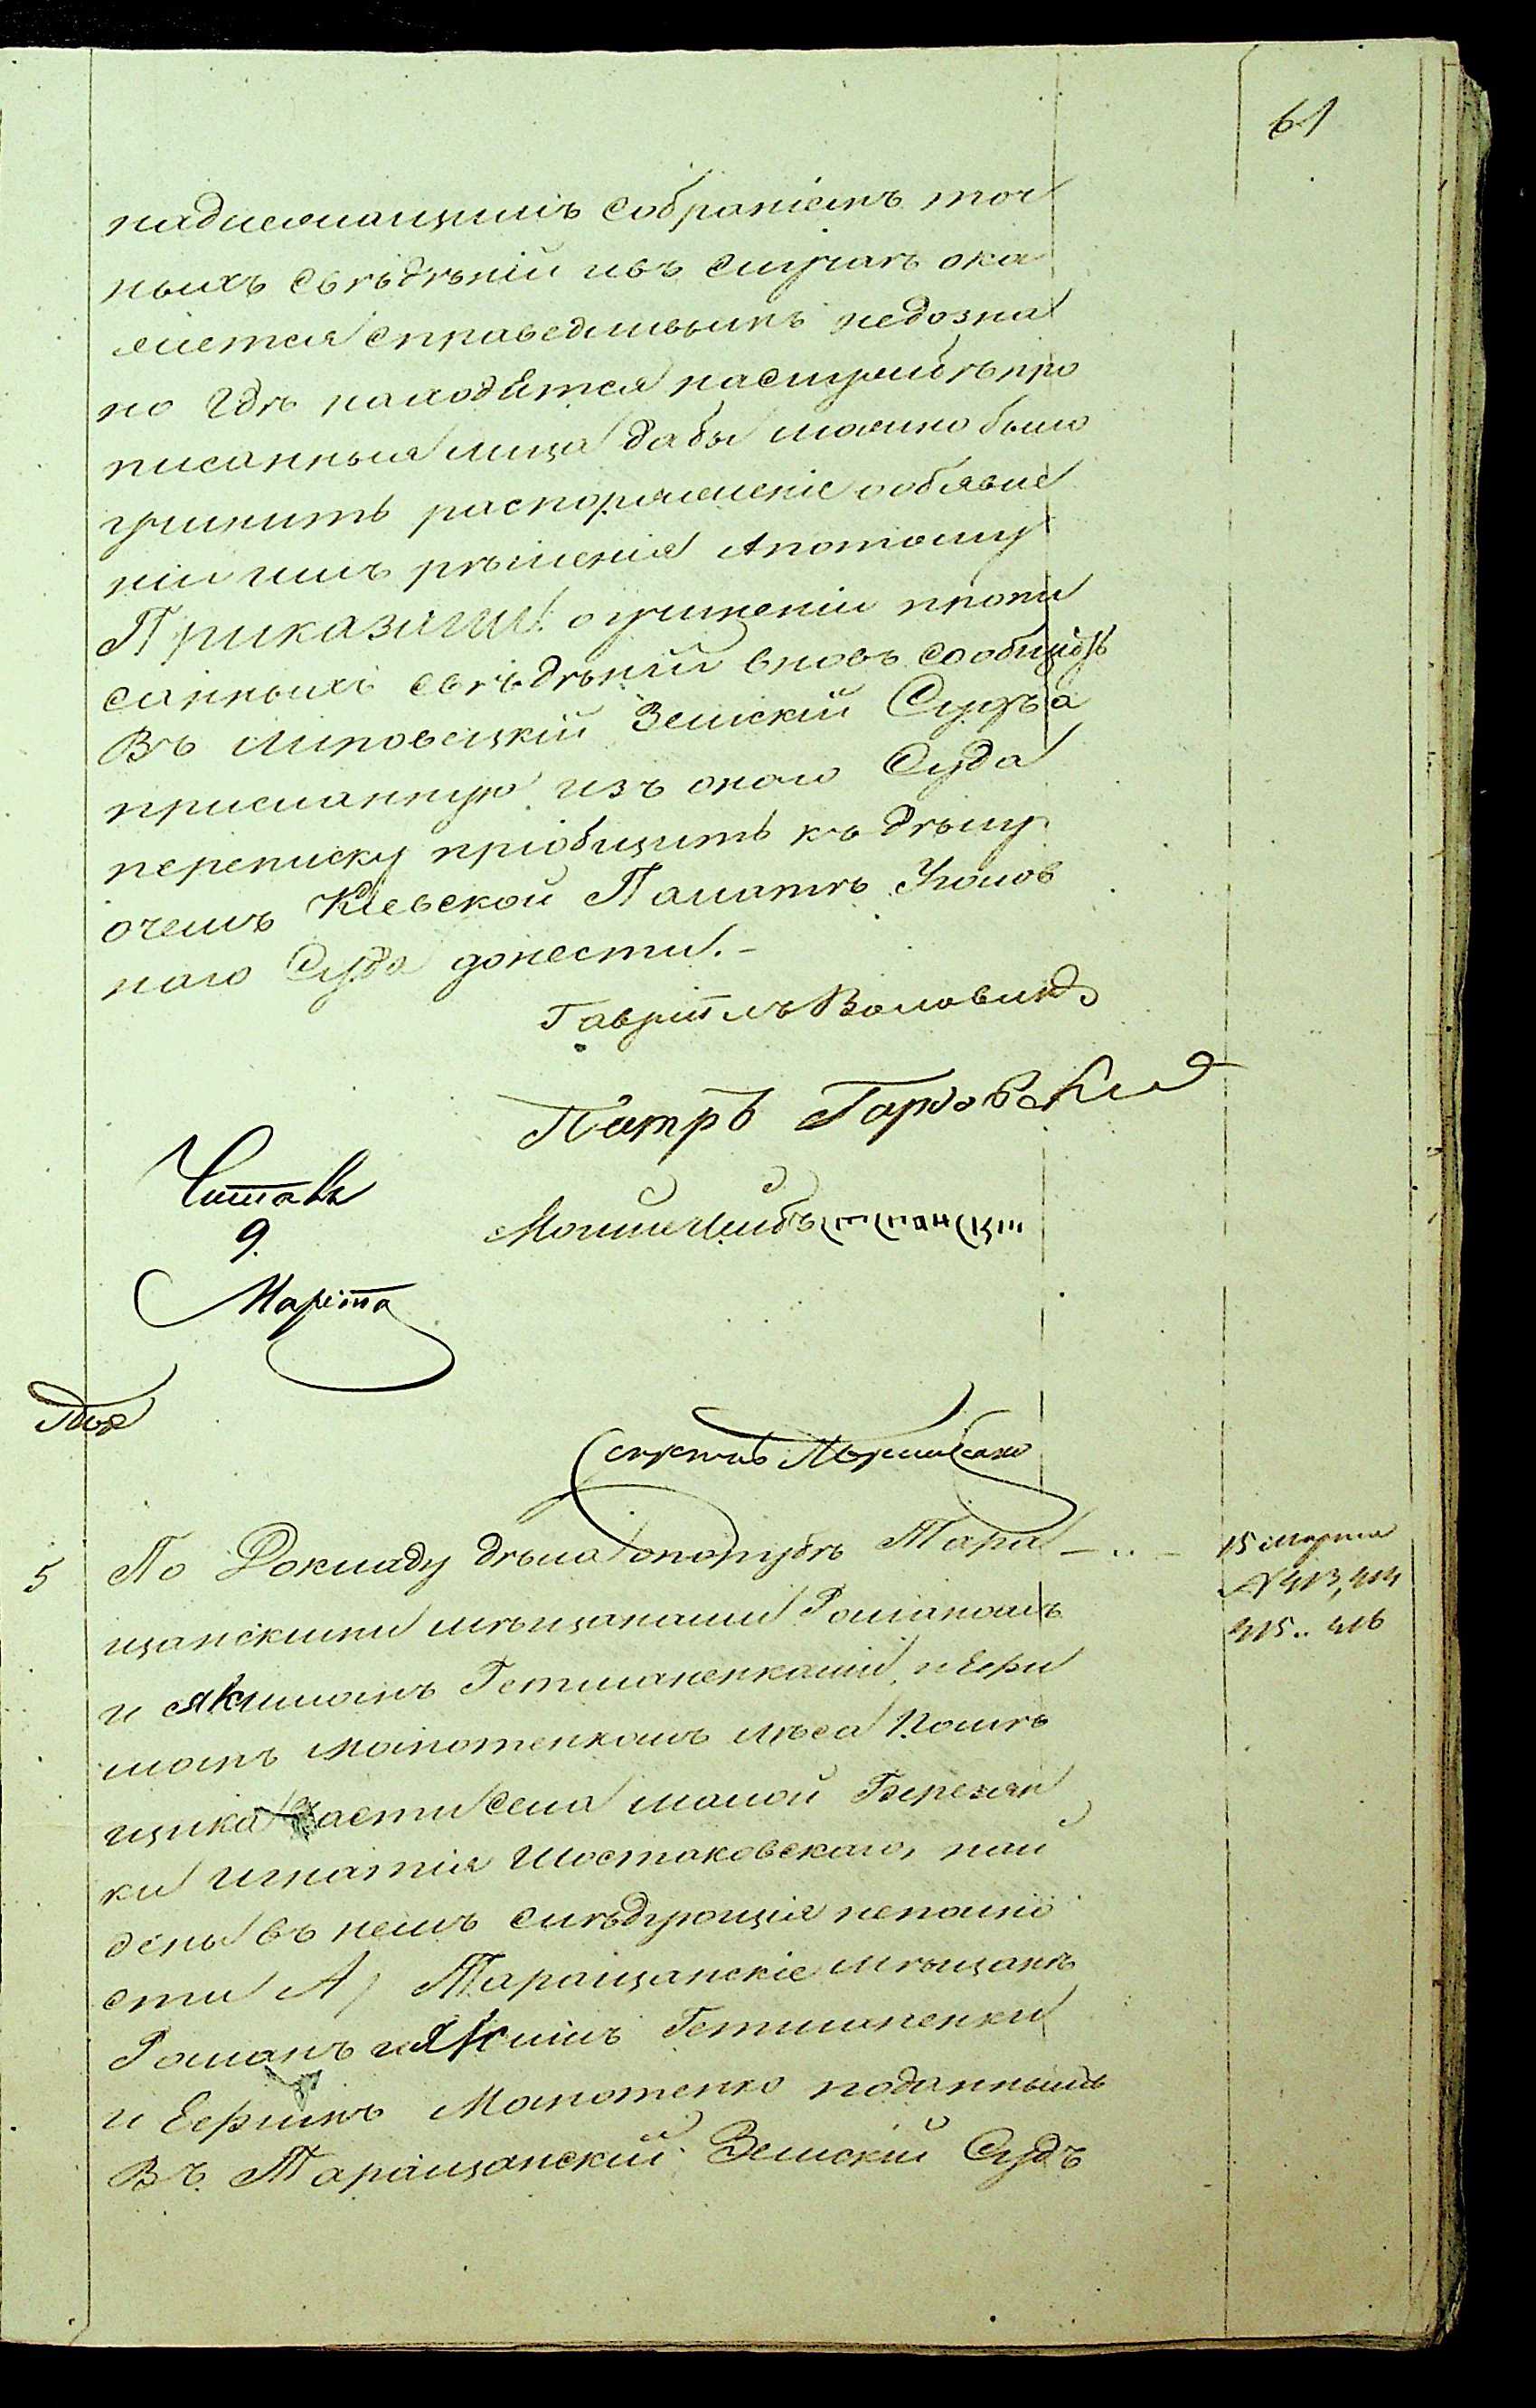 61
надлежащимъ собраніемъ точ
ныхъ сведеній ивъ случаѣ ока
жется справедливымъ недозна
но гдѣ находятся наслужбѣ про
писанныя лица дабы можно было
учинить распоряженіе ообъявле
ніи имъ решенія Апотому
Приказали: оучиненіи пропи
санныхъ сведеній вновь сообщить
Въ Липовецкій Земскій Судъ а
присланную изъ онаго Суда
переписку пріобщить къ дѣлу
очемъ Кіевской Палатѣ Уголов
наго Суда донести. -
Гавріилъ Воловикъ
Петръ
Читалъ
9.
Марта
Секретарь
5 По Докладу дѣла опорубкѣ Тара 15 марта
щанскими мѣщанами Романомъ № 413, 414
и Якимомъ Гетманенками, и Ефи 415.. 416
момъ Мапотенкомъ лѣса Помѣ
щика части села малой Березян
ки Игнатія Шостаковскаго, най
дены въ немъ слѣдующія неполно
сти А/ Таращанскіе мѣщане
Романъ и Якимъ Гетманенки
и Ефимъ Мапотенко поданнымъ
Въ Таращанскій Земскій Судъ